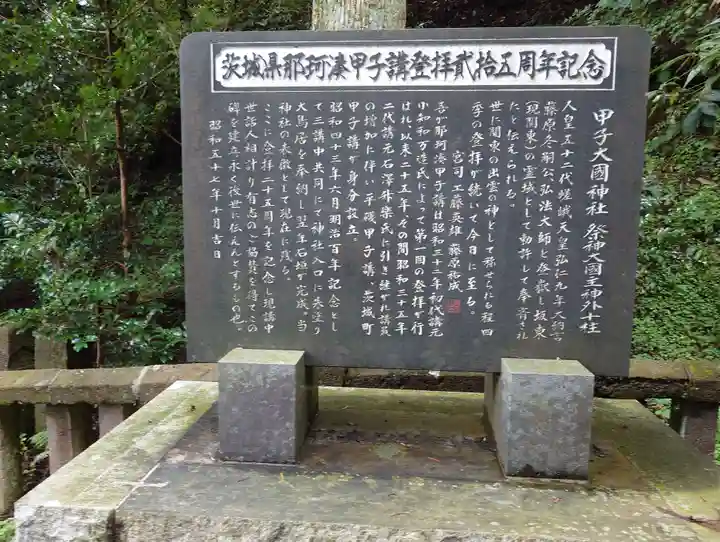 茨城県那珂湊甲子講登拝貳拾五周年記念
甲子大國神社 祭神大國主神外十柱
人皇五十二代嵯峨天皇弘仁九年大納言
藤原冬嗣公弘法大師と登嶽し坂東
(現関東)の霊域として勧請して奉斎され
たと伝えられる。
世に関東の出雲の神として称せられる程四
季の登拝が続いて今日に至る。
宮司 工藤英雄 藤原祐成
吾が那珂湊甲子講は昭和三十二年初代講元
小知和万造氏によって第一回の登拝が行
はれ以来二十五年、その間昭和三十五年
二代講元石澤舛榮氏に引き継がれ講員
の増加に伴い平磯甲子講、茨城町
甲子講が身分設立。
昭和四十三年六月明治百年記念とし
て三講中共同にて神社入口に朱塗り
大鳥居を奉納し翌年石垣が完成。当
神社の表徴として現在に残る。
ここに登拝二十五周年を記念し現講中
世話人相計り有志のご協賛を得てこの
碑を建立永く後世に伝えんとするもの也。
昭和五十七年十月吉日